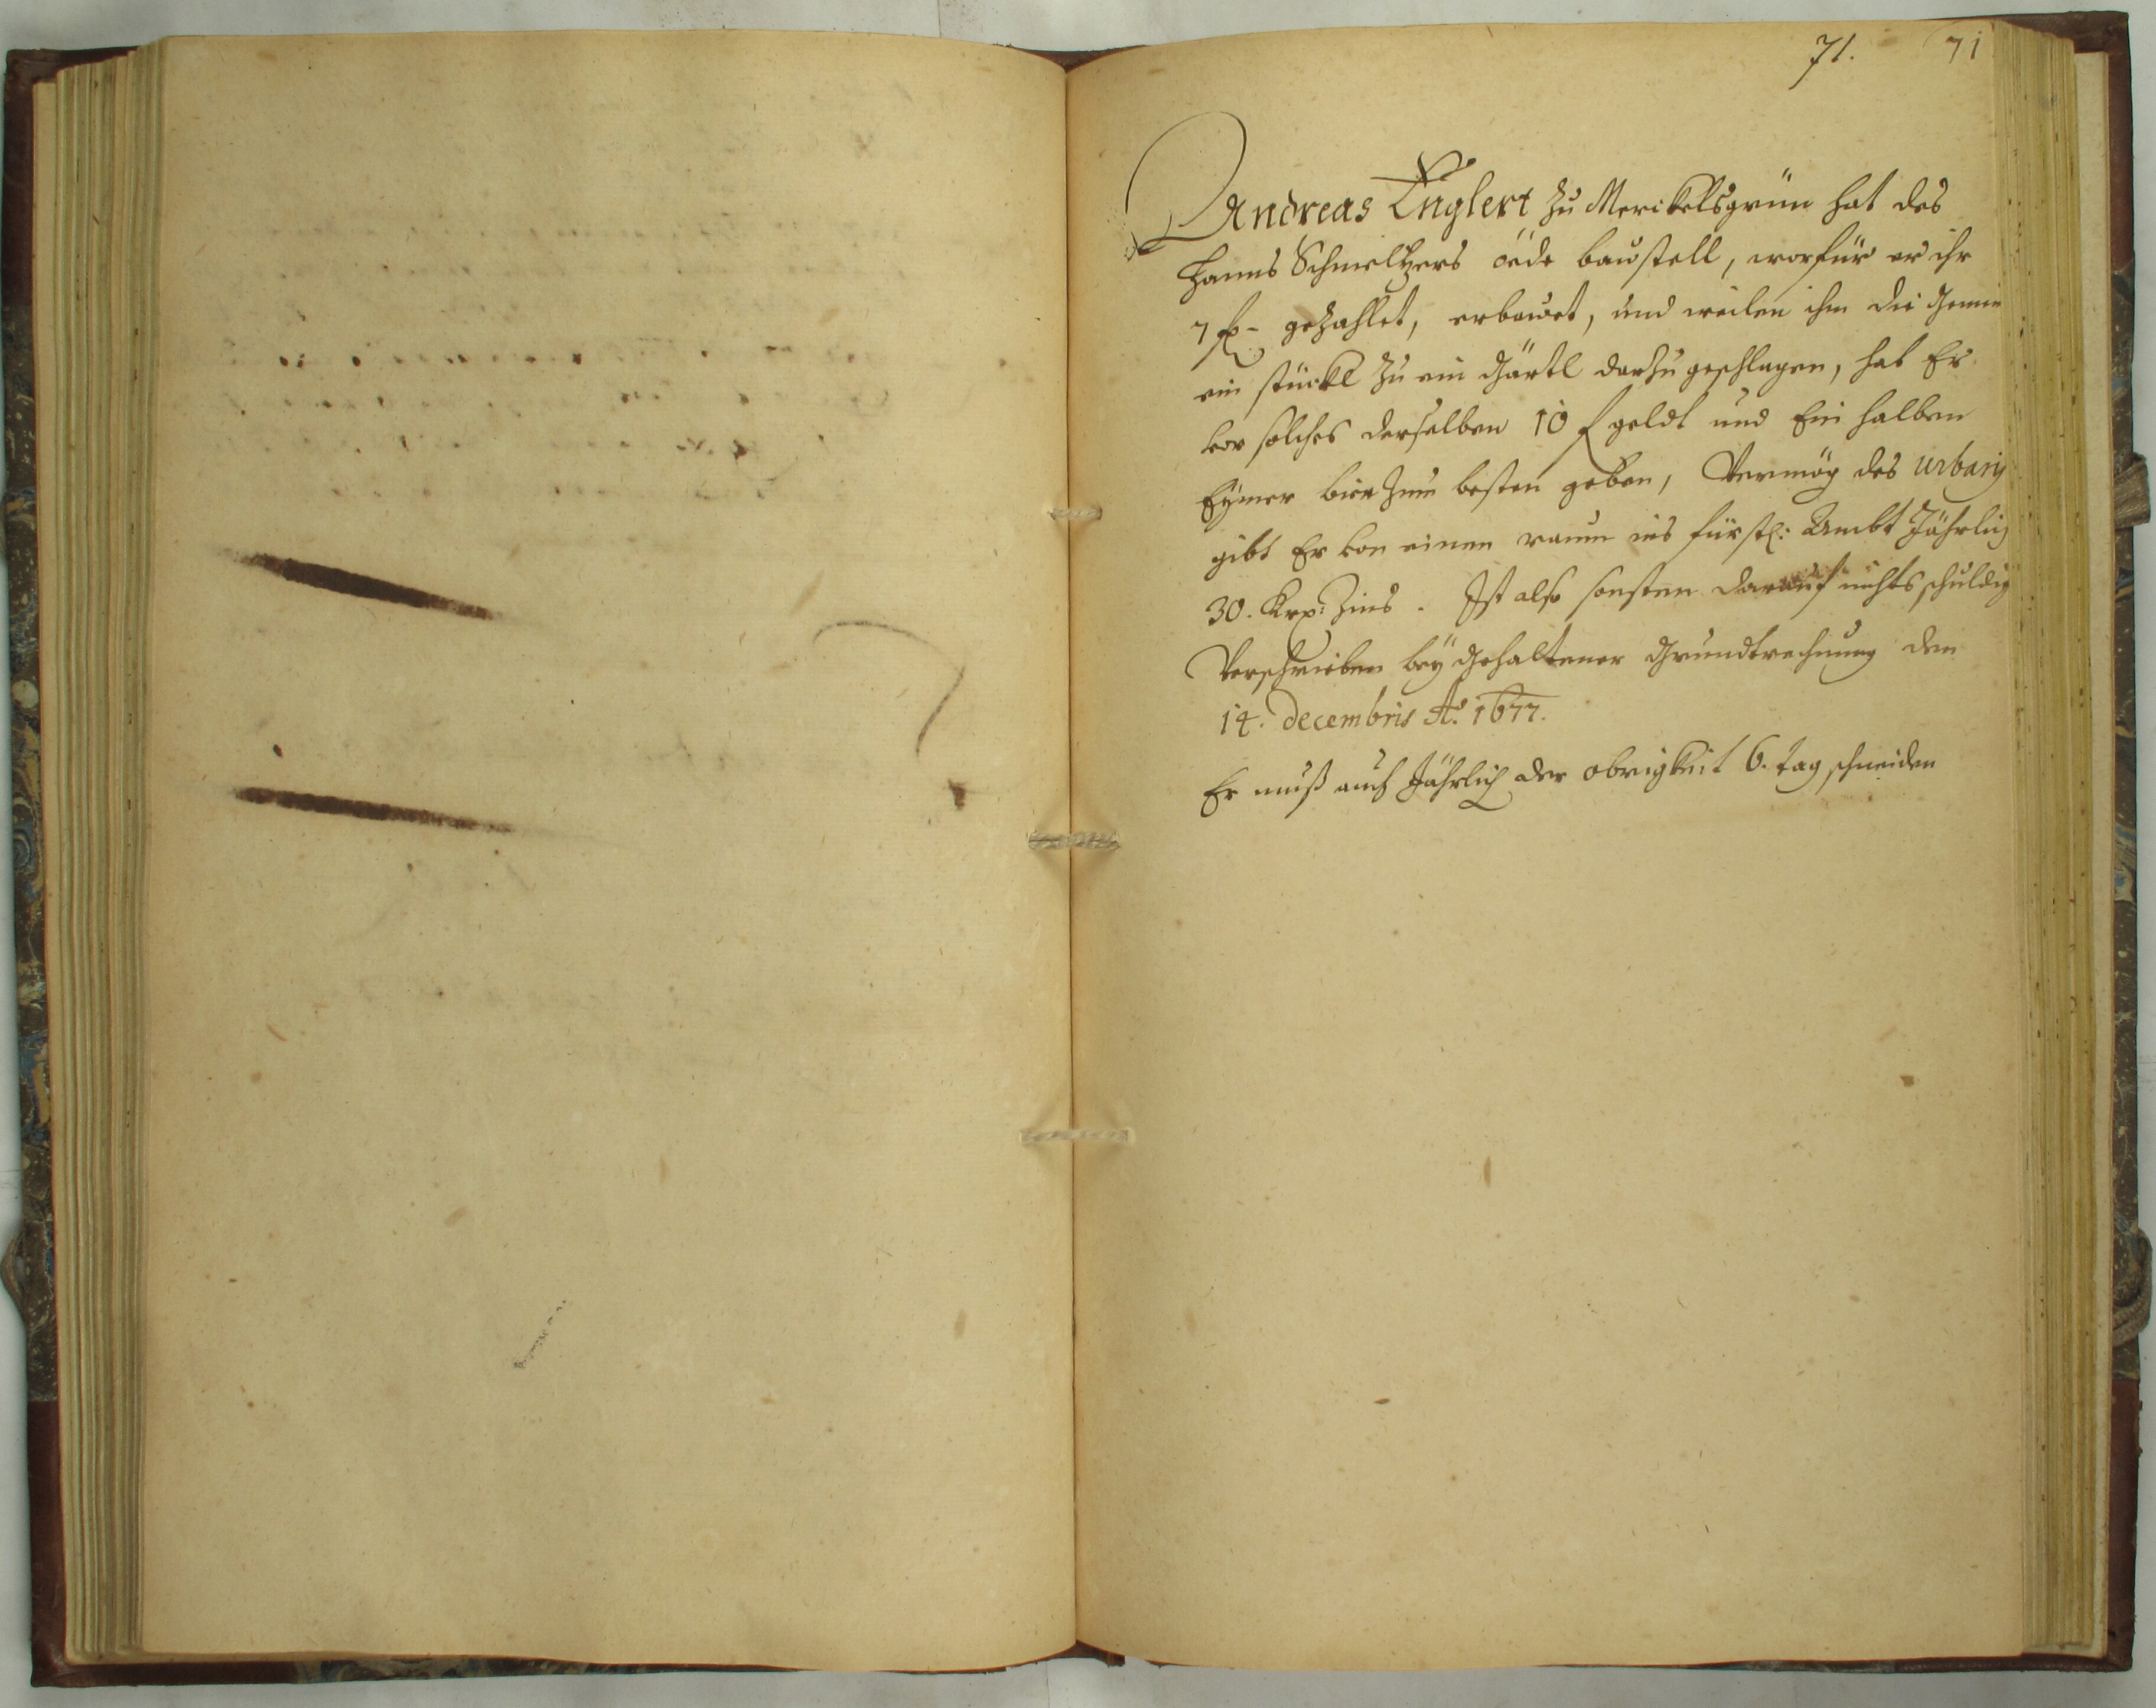 71. 71
Andreas Englert zu Merckelsgrün hat des
Hanns Schmeltzers oede baustell, worfür er ihr
7 f - gezahlet, erbauet, und weilen ihm die Gemein
ein stückl zu ein Gärtl darzu geschlagen, hat Er
vor solches derselben 10 f geldt und Ein halben
Eÿmer bier zum besten geben, Vermög des Urbarij
gibt Er von einen raum ins fürstl: Ambt Jährlich
30. Krz: Zins. Ist also sonsten darauf nichts schuldig
Verschrieben beÿ gehaltener Grundtrechnung den
14. Decembris Ao. 1677.
Er muß auch Jährlich der obrigkeit 6. tag schneiden